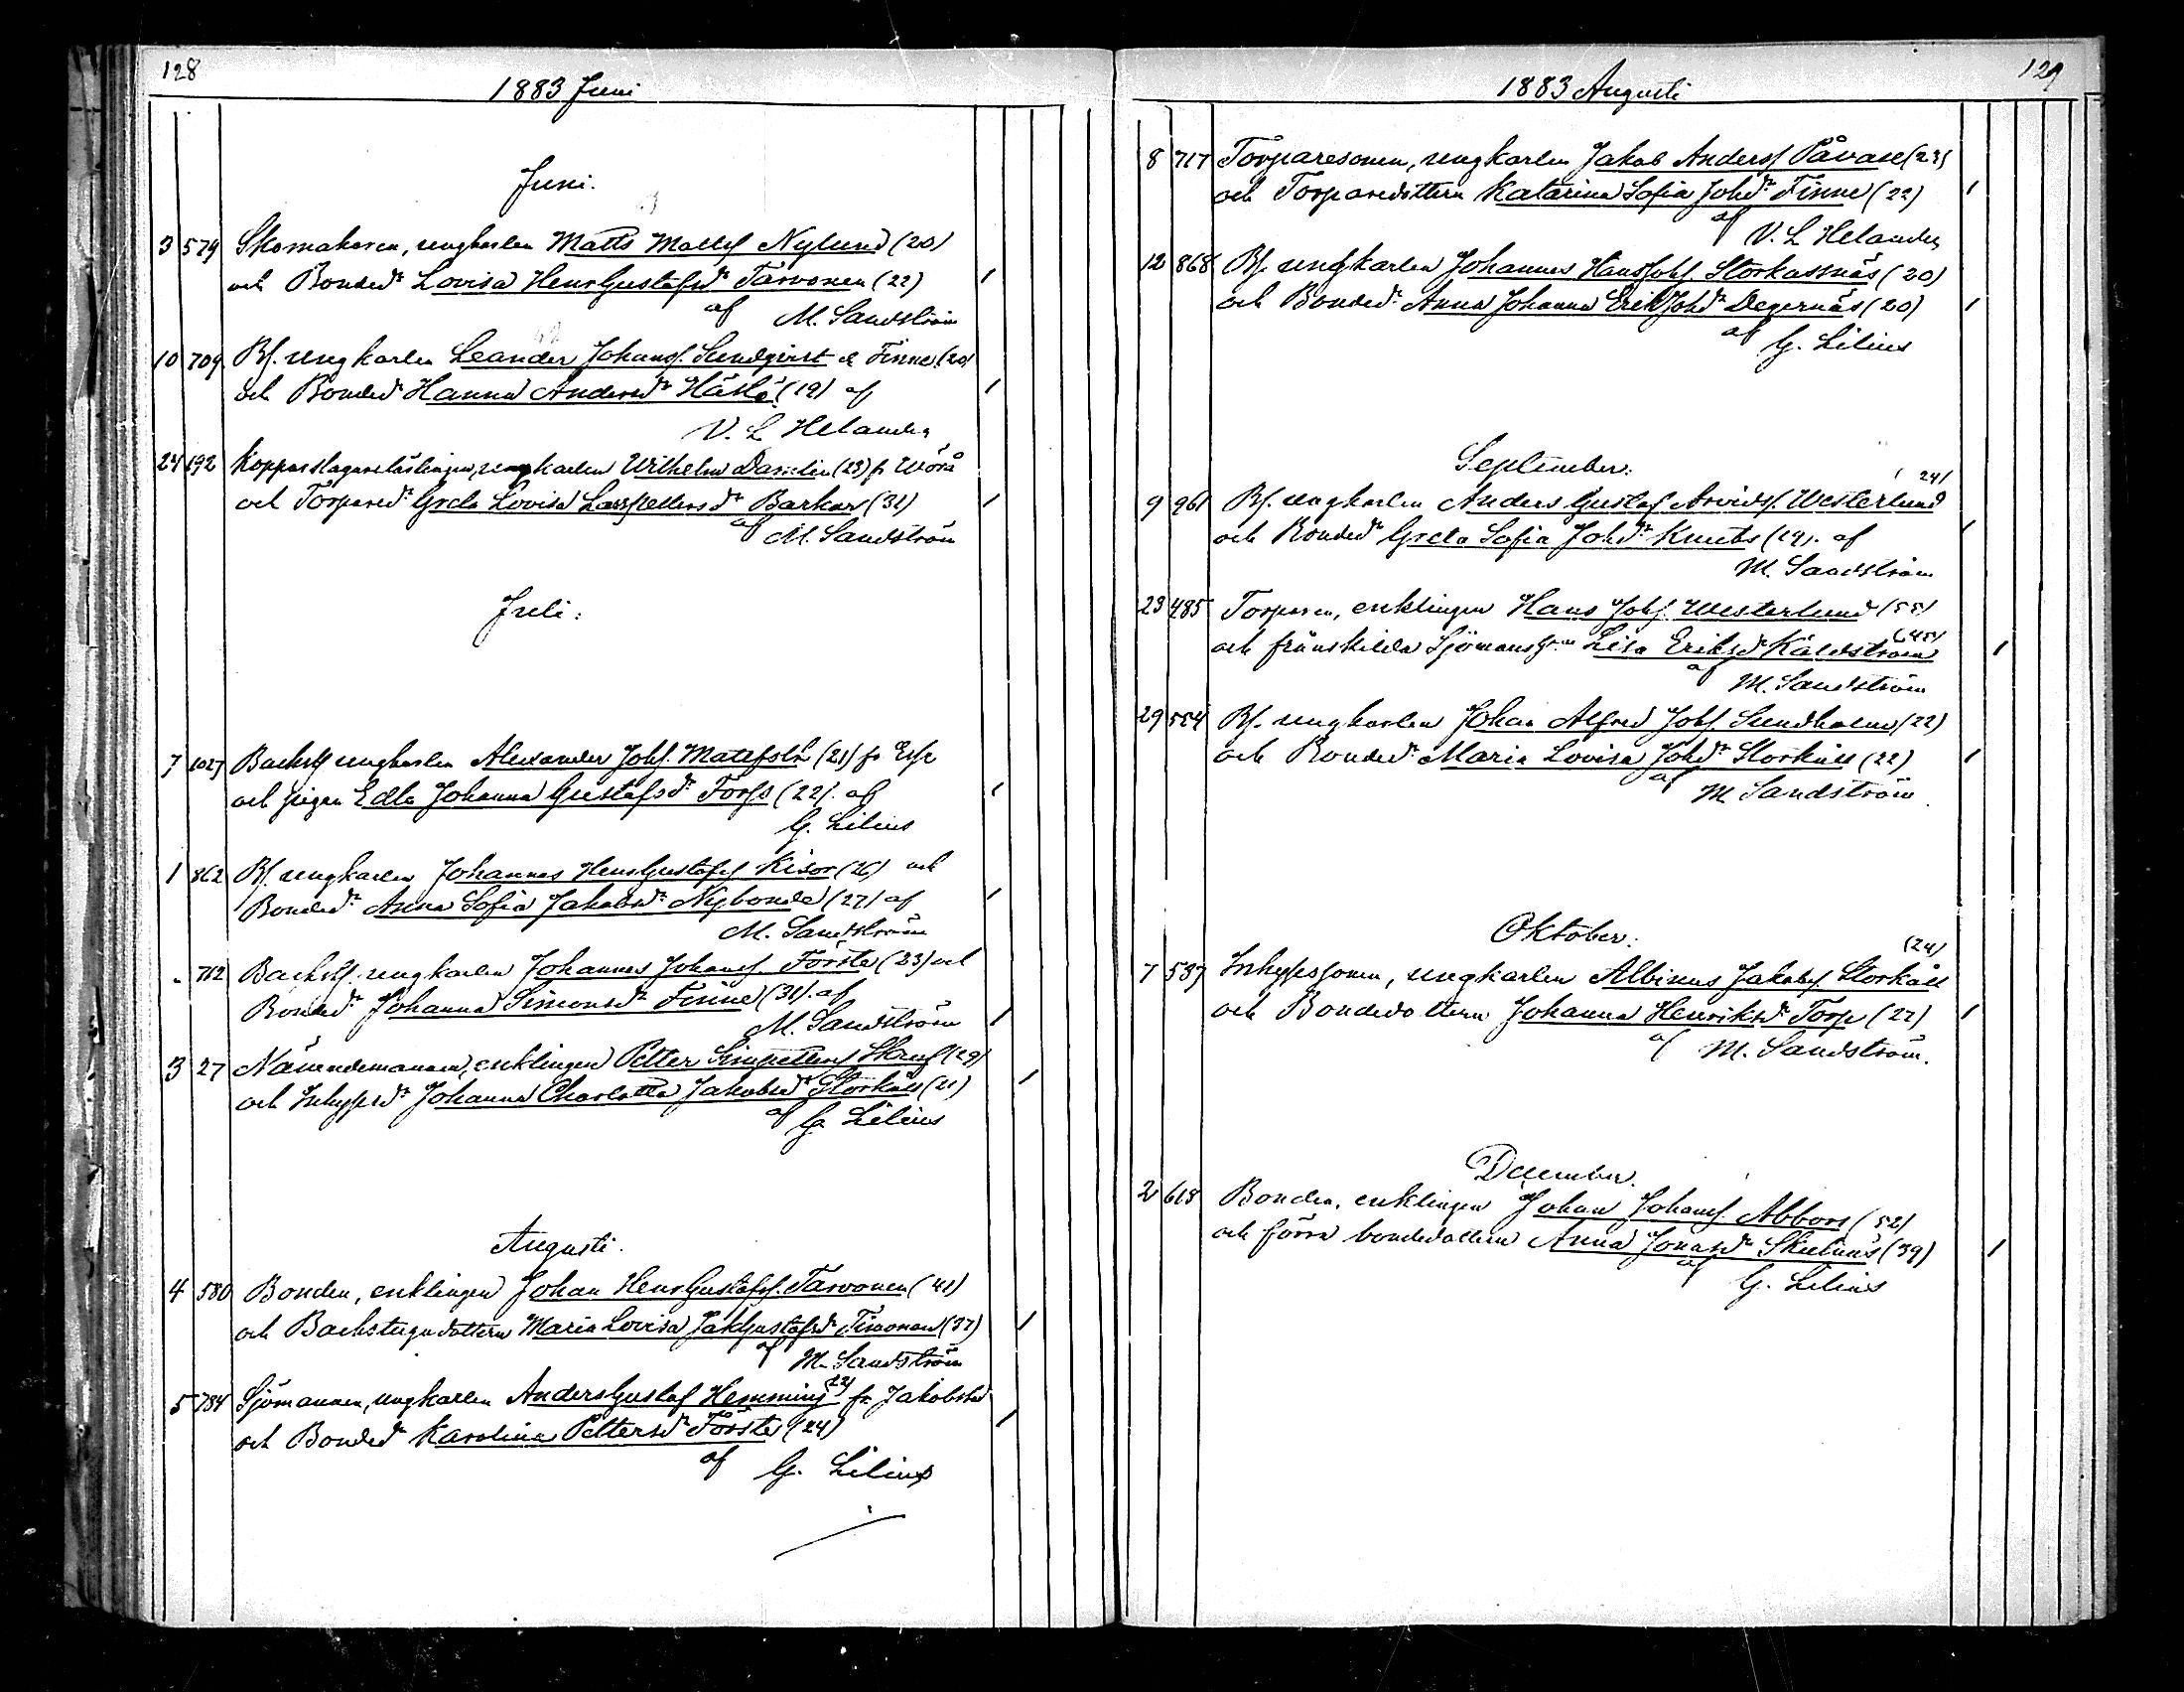 128
1883 Juni
Juni.
3 579 Skomakaren, ungkarlen Matts Mattsf Nylund (20)
och Bonded:r Lovisa HenrGustafsd:r Tarvonen (22)
af M. Sandström
10 709 Bf. ungkarlen Leander Johansf. Sundqvist el Finne (20)
och Bonded:r Hanna Andersd:r Hästö (19) af
V. L Helander
24 192 Kopparslagarelärlingen, ungkarlen Wilhelm Damlin (23) fr Wörå
och Torpared:r Greta Lovisa LarsPettersd:r Barkar (31)
af M. Sandström
Juli:
7 1027 Backstf ungkarlen Alexander Johf. (21) fr Esse
och pigan Edla Johanna Gustafsd:r Forss (22). af
G. Lilius
1 862 Bf. ungkarlen Johannes HenrGustafsf Kisor (26) och
Bonded:r Anna Sofia Jakobsd:r Nybonde (27) af
M. Sandström
" 712 Backstf. ungkarlen Johannes Johansf. Förste (23) och
Bonded:r Johanna Simonsd:r Finne (31). af
M. Sandström
3 27 Nämndemannen, enklingen Petter Simpettersf (29)
och Inhysesd:r Johanna Charlotta Jakobsd:r Storkåll (21)
af G. Lilius
Augusti.
4 580 Bonden, enklingen Johan HenrGustafsf. Tarvonen (41)
och Backstugudottern Maria Lovisa JakGustafsd:r Timonen (37)
af M. Sandström
5 784 Sjömannen, ungkarlen AndersGustaf Hemming (22) fr. Jakobstad
och Bonded:r Karolina Pettersd:r Förste (24)
af G. Lilius
129
1883 Augusti
8 717 Torparesonen, ungkarlen Jakob Andersf Påvase (23)
och Torparedottern Katarina Sofia Johd:r Finne (22)
af V. L Helander
12 868 Bf. ungkarlen Johannes HansJohf. Storkassnäs (20)
och Bonded:r Anna Johanna ErikJohd:r Degernäs (20)
af G. Lilius
September.
(24)
9 961 Bf. ungkarlen Anders Gustaf Arvidsf. Westerlund
och Bonded:r Greta Sofia Johd:r Knuts (19). af
M. Sandström
23 485 Torparen, enklingen Hans Johf. Westerlund (55)
och frånskilda Lisa Eriksd:r Källström (45)
af M. Sandström
29 554 Bf. ungkarlen Johan Alfred Johf. Sundholm (22)
och Bonded:r Maria Lovisa Johd:r Storkåll (22)
af M Sandström.
Oktober.
(24)
7 587 Inhysessonen, ungkarlen Albinus Jakobsf. Storkåll
och Bondedottern Johanna Henriksd:r Torp (22)
af M. Sandström.
December.
2 618 Bonden, enklingen Johan Johansf. Abbors (52)
och förra bondedottern Anna Jonasd:r Skutnäs (39)
af G. Lilius